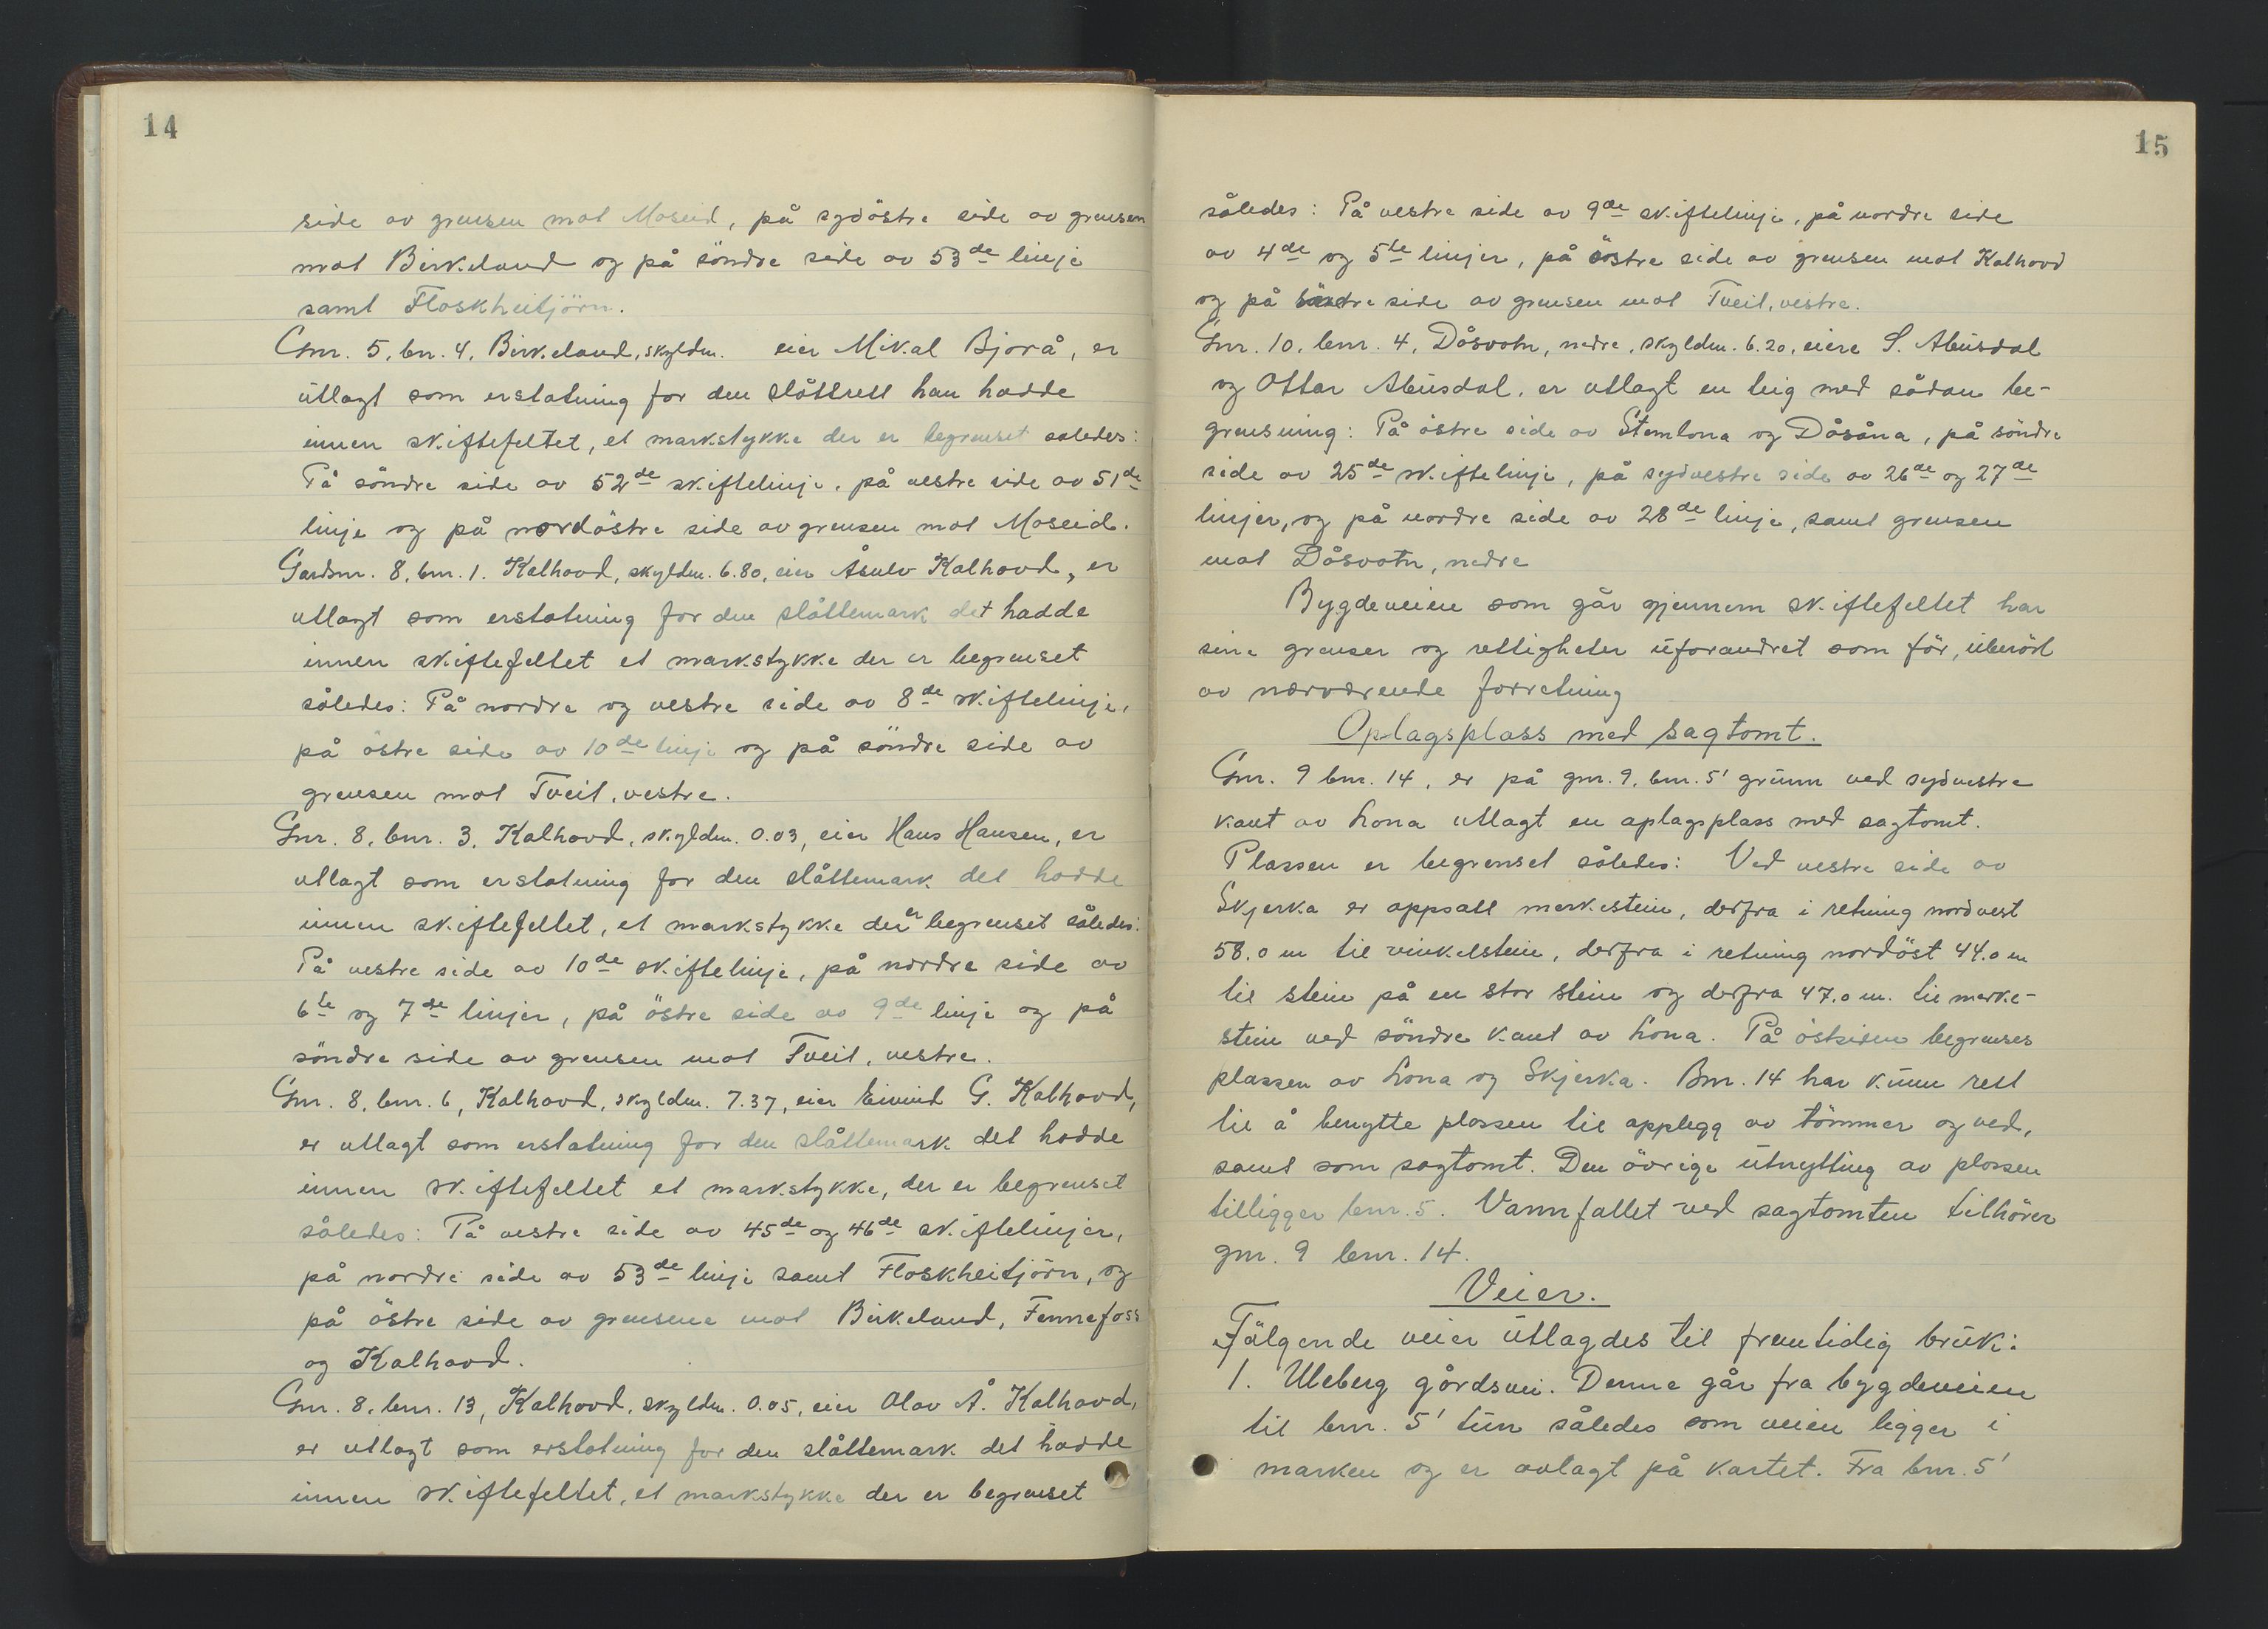 14
side av grensen mot Moseid, på sydöstre side av grensen
mot Birkeland og på söndre side av 53de linje
samt Floskheitjörn.
Gnr. 5, bnr. 4, Birkeland, skyldm. eier Mikal Bjorå, er
utlagt som erstatning for den slåttrett han hadde
innen skiftefeltet, et markstykke der er begrenset således:
På söndre side av 52de skiftelinje, på vestre side av 51de
linje og på nordöstre side av grensen mot Moseid.
Gardsnr. 8, bnr. 1. Kalhovd, skyldm. 6.80, eier Åsulv Kalhovd, er
utlagt som erstatning for den slåttemark det hadde
innen skiftefeltet et markstykke der er begrenset
således: På nordre og vestre side av 8de skiftelinje,
på östre side av 10de linje og på söndre side av
grensen mot Tveit, vestre.
Gnr. 8, bnr. 3, Kalhovd, skyldm. 0.03, eier Hans Hansen, er
utlagt som erstatning for den slåttemark det hadde
innen skiftefeltet, et markstykke der er begrenset således:
På vestre side av 10de skiftelinje, på nordre side av
6te og 7de linjer, på östre side av 9de linje og på
söndre side av grensen mot Tveit, vestre.
Gnr. 8, bnr. 6, Kalhovd, skyldm. 7.37, eier Eivind G. Kalhovd,
er utlagt som erstatning for den slåttemark det hadde
innen skiftefeltet et markstykke, der er begrenset
således: På vestre side av 45de og 46de skiftelinjer,
på nordre side av 53de linje samt Floskheitjörn, og
på östre side av grensene mot Birkeland, Fennefoss
og Kalhovd.
Gnr. 8, bnr. 13, Kalhovd, skyldm. 0.05, eier Olav Å. Kalhovd,
er utlagt som erstatning for den slåttemark det hadde
innen skiftefeltet, et markstykke der er begrenset
15
således: På vestre side av 9de skiftelinje, på nordre side
av 4de og 5te linjer, på östre side av grensen mot Kalhovd
og på söndre side av grensen mot Tveit, vestre.
Gnr. 10, bnr. 4, Dåsvatn, nedre, skyldm. 6.20, eiere S. Abusdal
og Ottar Abusdal, er utlagt en teig med sådan be-
grensning: På östre side av Stemlona og Dåsåna, på söndre
side av 25de skiftelinje, på sydvestre side av 26de og 27de
linjer, og på nordre side av 28de linje, samt grensen
mot Dåsvatn, nedre
Bygdeveien som går gjennem skiftefeltet har
sine grenser og rettigheter uforandret som för, uberört
av nærværende forretning
Oplagsplass med sagtomt.
Gnr. 9 bnr. 14, er på gnr. 9, bnr. 5' grunn ved sydvestre
kant av Lona utlagt en oplagsplass med sagtomt.
Plassen er begrenset således: Ved vestre side av
Skjerka er oppsatt merkestein, derfra i retning nordvest
58.0 m til vinkelstein, derfra i retning nordöst 44.0 m
til stein på en stor stein og derfra 47.0 m. til merke-
stein ved söndre kant av Lona. På östsiden begrenses
plassen av Lona og Skjerka. Bnr. 14 har kunn rett
til å benytte plassen til opplegg av tömmer og ved,
samt som sagtomt. Den övrige utnytting av plassen
tilligger bnr. 5. Vannfallet ved sagtomten tilhörer
gnr. 9 bnr. 14.
Veier.
Fölgende veier utlagdes til fremtidig bruk:
1. Uleberg gårdsvei. Denne går fra bygdeveien
til bnr. 5' tun således som veien ligger i
marken og er avlagt på kartet. Fra bnr. 5'